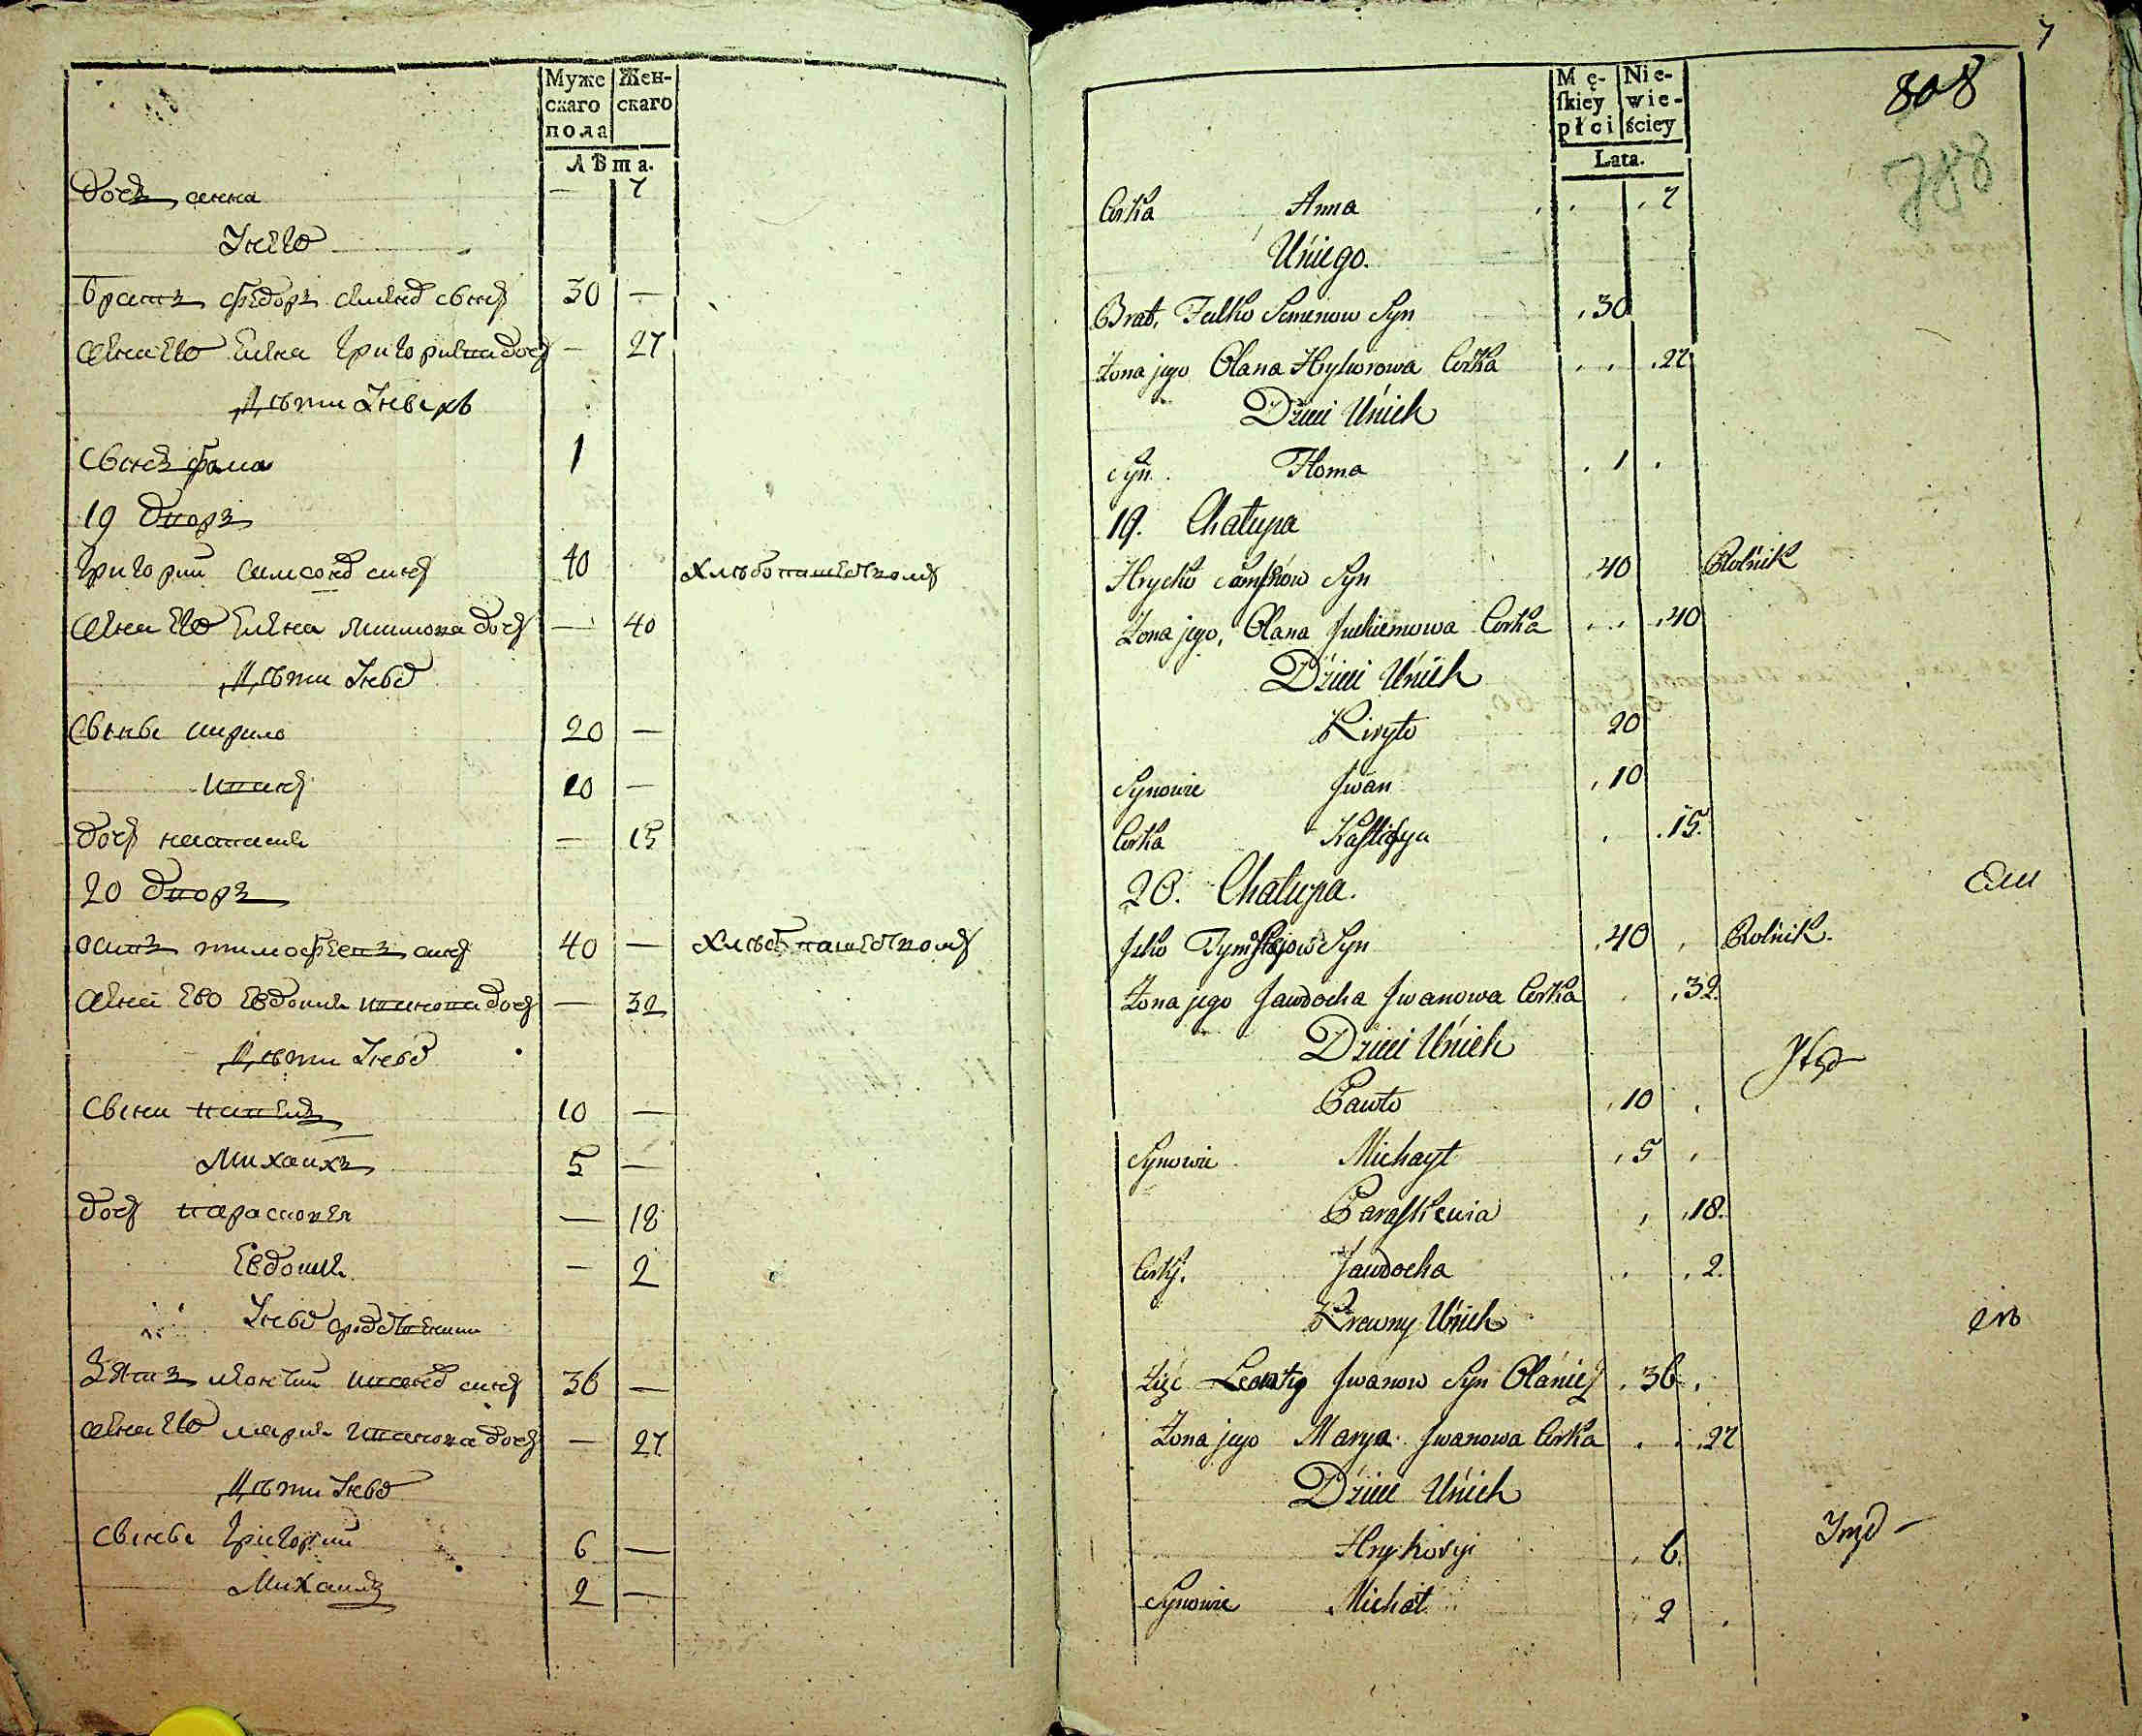 Муже Жен-
скаго скаго
пола
Лѣта.
дочь анна — 7
У него
братъ Федоръ сынъ 30 —
жена его Елена Григорьева дочь — 27
Дѣти У ныхъ
сынъ Фома 1
19 дворъ
Григорий Самсоновъ сынъ 40 хлѣбопашествомъ
жена его Елена дочь — 40
Дѣти У ныхъ
Сыны Кирило 20 —
Иванъ 10 —
дочь Настасия — 15
20 дворъ
осипъ тимофеевъ сынъ 40 — хлѣбопашествомъ
жена его Евдокия Иванова дочь — 32
Дѣти У ныхъ
Сыны Павелъ 10 —
Михаилъ 5 —
дочь парасковея — 18
Евдокия — 2
У ныхъ
Зять леонтий Ивановъ сынъ 36 —
жена его мария Иванова дочь — 27
Дѣти У ныхъ
Сыны Григорий 6 —
Михаилъ 2 —
7
808
788
Mę- Nie-
ſkiey wie-
płci ściey
Lata.
Corka Anna 7
Uńiego.
Brat, Fedko Semenow Syn 30
Żona jego Olana Hryhorowa Corka 27
Dzieci Uńich
Syn Homa 1
19. Chałupa
Hryćko Samsonow Syn 40 Rolńik
Żona jego, Olana Juchiemowa Corka 40
Dzieci Uńich
Kiryło 20
Synowie Jwan 10
Corka 15.
20. Chałupa.
Tymofiejow Syn 40 Rolńik.
Żona jego Jawdocha Jwanowa Corka 32.
Dzieci Uńich
Pawło 10
Synowie Michaył 5
Paraſkewia 18.
Corki. Jawdocha 2.
Krewny Uńich
Zięć Leontiy Jwanow Syn 36
Żona jego Marya Jwanowa Corka 27
Dzieci Uńich
Hryhoryi 6.
Synowie Michał 2